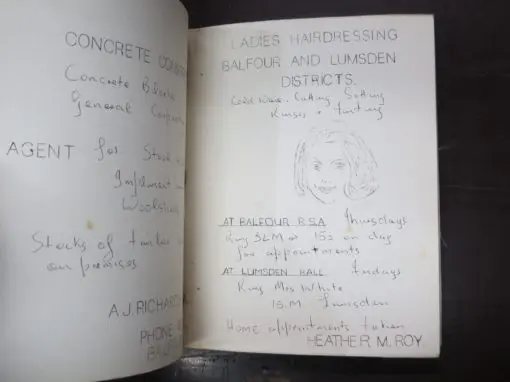 CONCRETE
Concrete Blocks
General
AGENT for Stock
Implement
Stocks of timber
our premises
A.J. RICHARDS
PHONE
LADIES HAIRDRESSING
BALFOUR AND LUMSDEN
DISTRICTS.
Cold Wave. Cutting Setting
Rinses + Tinting
AT BALFOUR R.S.A Thursdays
Ring 32M or 15S on day
for appointments
AT LUMSDEN HALL
Ring Mrs White
15M Lumsden
Home appointments taken
HEATHER M. ROY